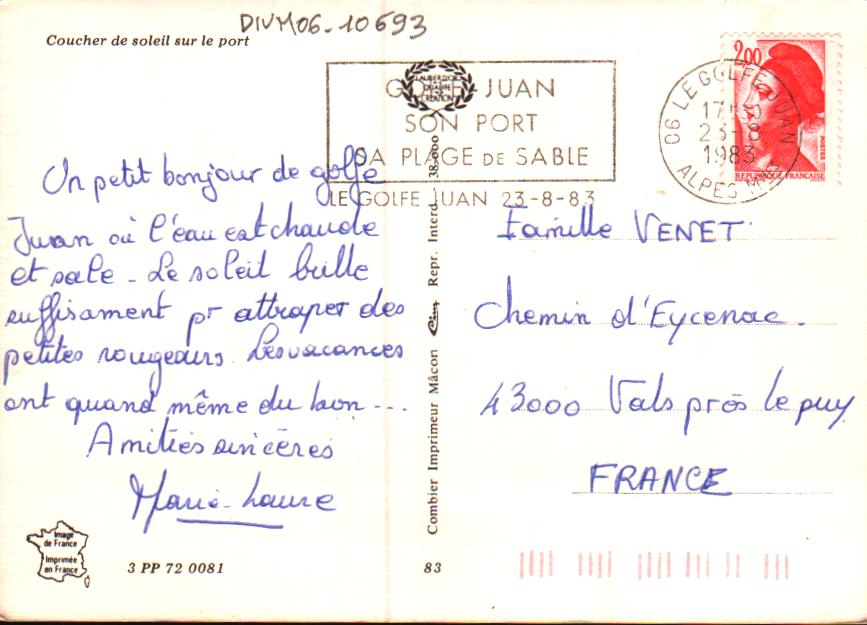 DIVM06-10693
Coucher de soleil sur le port
GOLFE-JUAN
SON PORT
SA PLAGE DE SABLE
LE GOLFE JUAN 23-8-83
LAURIER D'OR
QUALITÉ
CRÉATION
06 LE GOLFE JUAN
17H30
23-8
1983
ALPES MMES
2,00
POSTES
REPUBLIQUE FRANÇAISE
Un petit bonjour de golfe
Juan où l'eau est chaude
et sale - Le soleil brille
suffisament pr attraper des
petites rougeurs. Les vacances
ont quand même du bon ...
Amitiés sincères
Marie-Laure
Famille VENET
Chemin d'Eycenac.
43000 Vals près le puy
FRANCE
Combier Imprimeur Mâcon Cim Repr. Interd. 38.000
Image
de France
Imprimée
en France
3 PP 72 0081
83